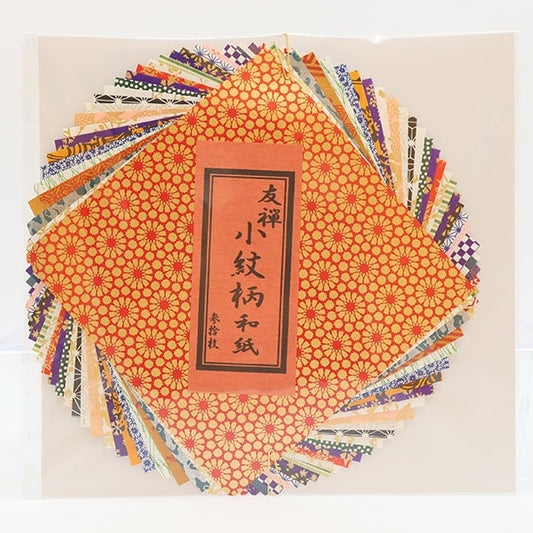 友禅
小紋柄和紙
参拾枚